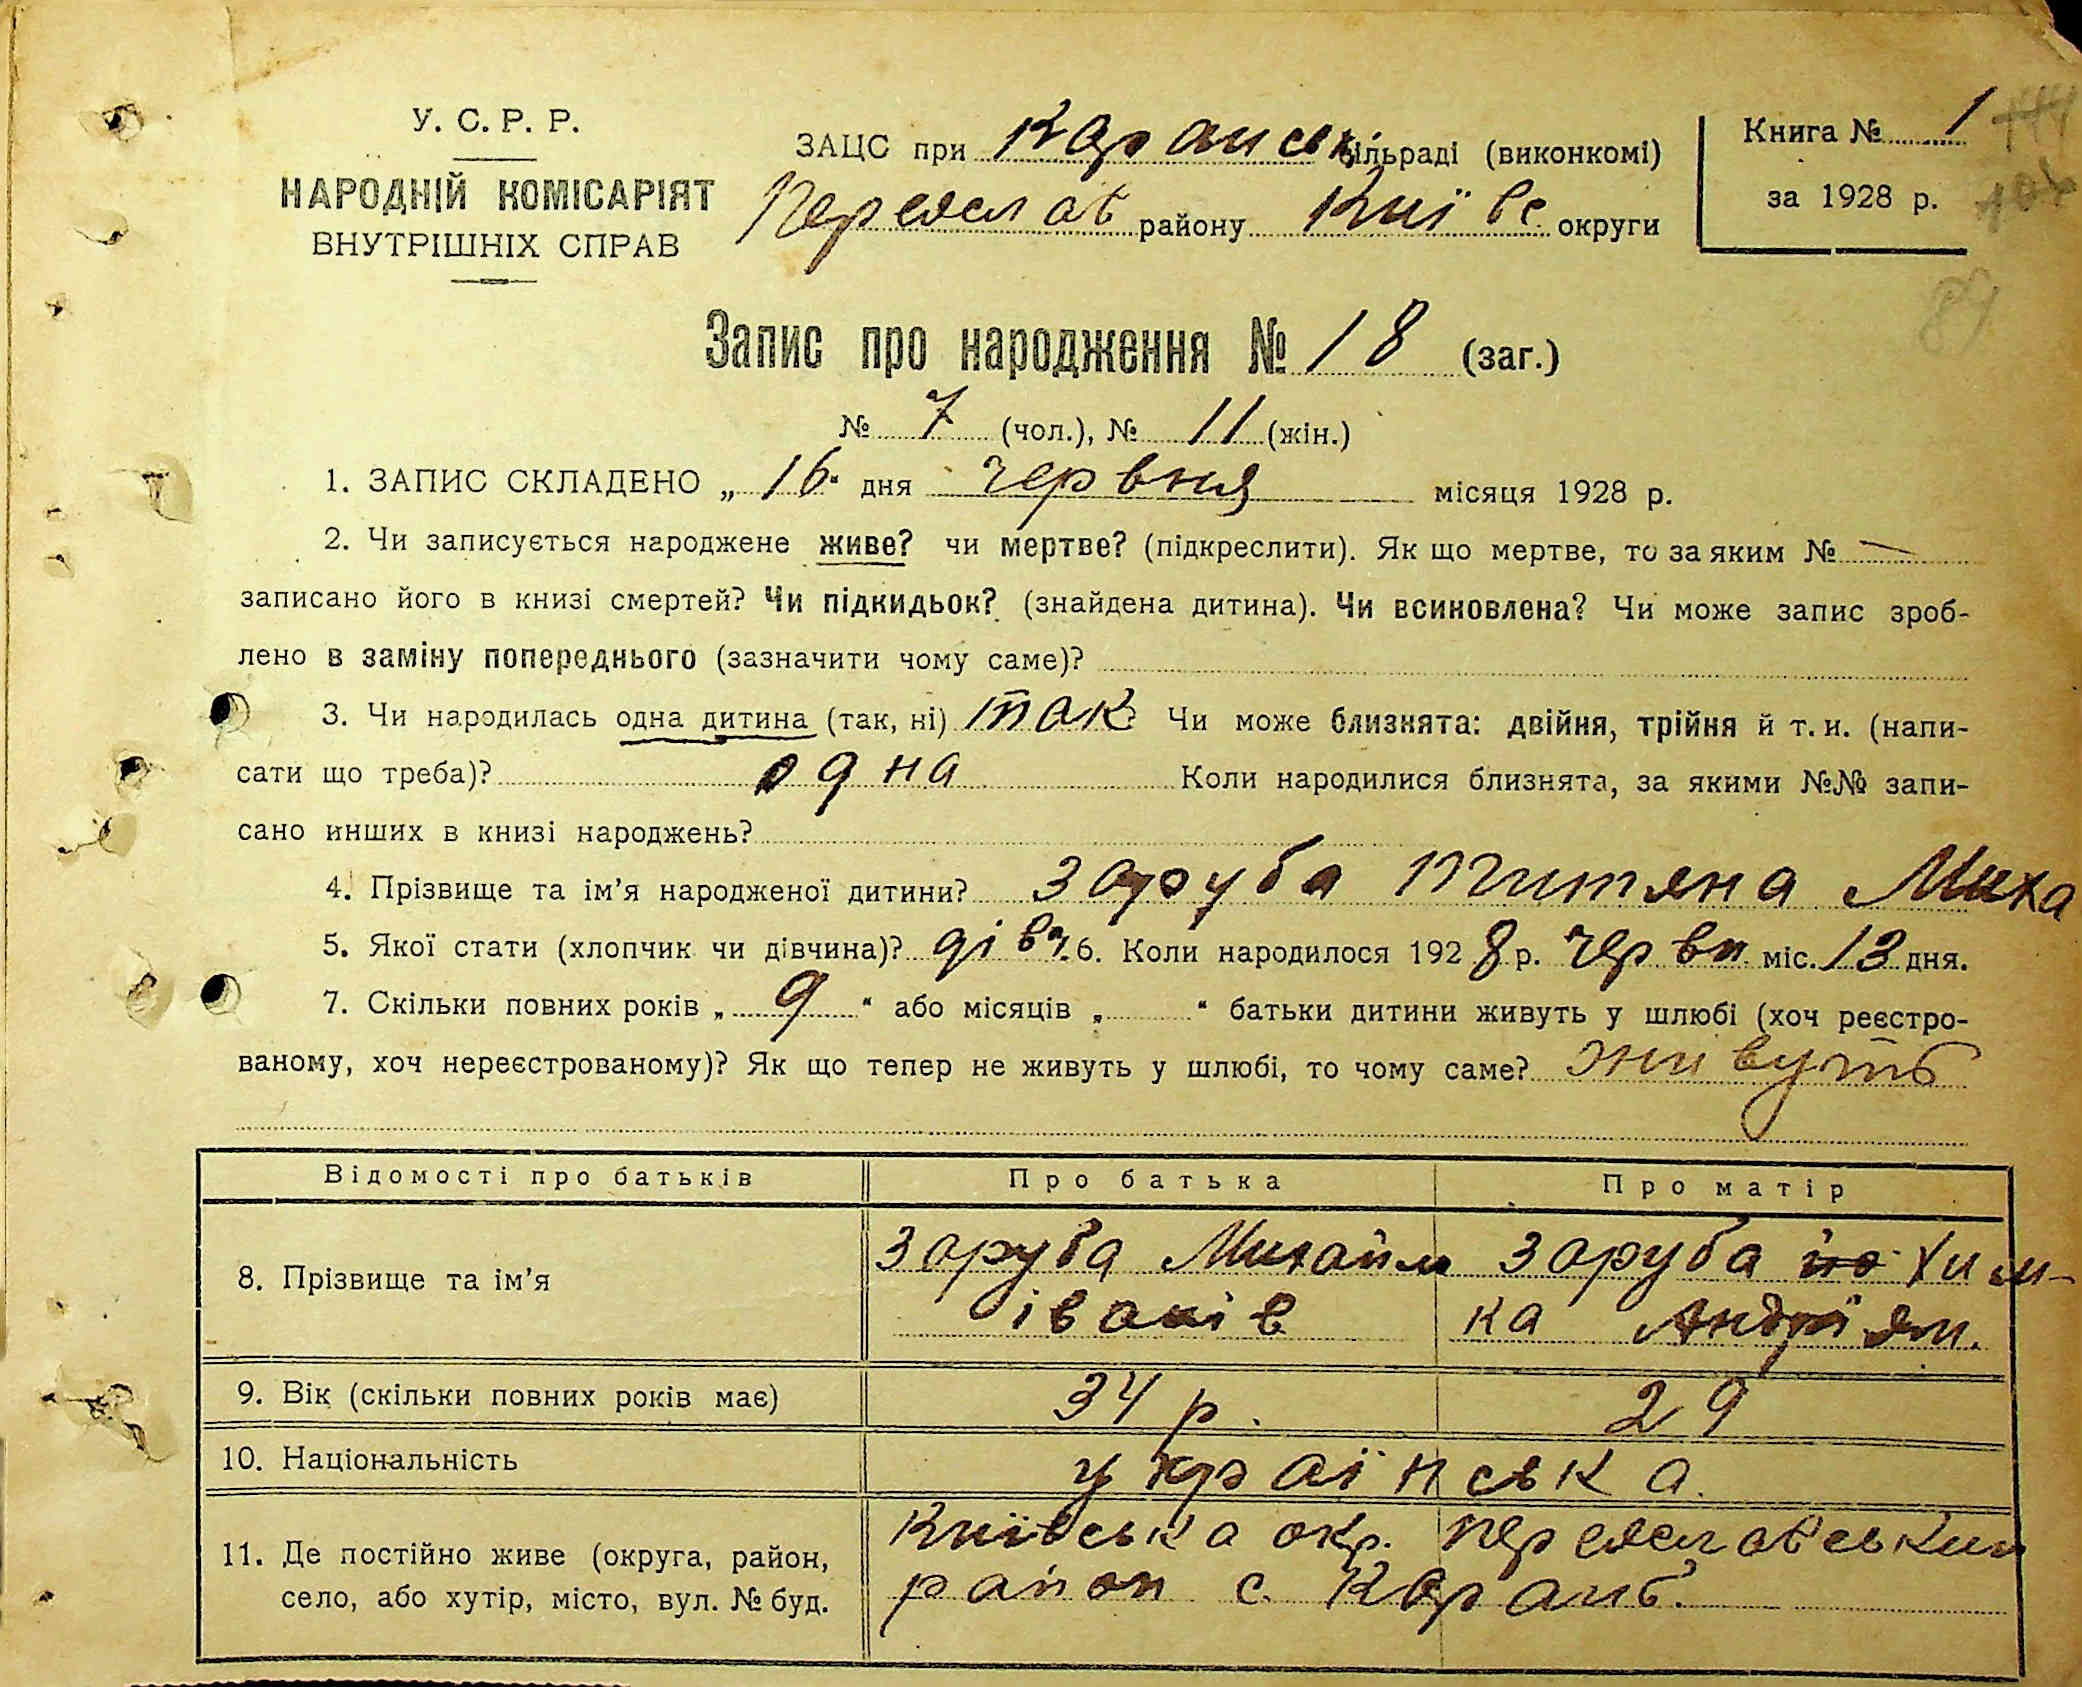 У. С. Р. Р.
НАРОДНІЙ КОМІСАРІЯТ
ВНУТРІШНІХ СПРАВ
ЗАЦС при Каранськ сільраді (виконкомі)
Переяслав району Київс. округи
Книга № 1
за 1928 р.
84
Запис про народження № 18 (заг.)
№ 7 (чол.), № 11 (жін.)
1. ЗАПИС СКЛАДЕНО „16" дня червня місяця 1928 р.
2. Чи записується народжене живе? чи мертве? (підкреслити). Як що мертве, то за яким № —
записано його в книзі смертей? Чи підкидьок? (знайдена дитина). Чи всиновлена? Чи може запис зроб-
лено в заміну попереднього (зазначити чому саме)?
3. Чи народилась одна дитина (так, ні) так Чи може близнята: двійня, трійня й т. и. (напи-
сати що треба)? одна Коли народилися близнята, за якими №№ запи-
сано инших в книзі народжень?
4. Прізвище та ім’я народженої дитини? Заруба Титяна Миха
5. Якої стати (хлопчик чи дівчина)? дівч. 6. Коли народилося 1928 р. червн. міс. 13 дня.
7. Скільки повних років „ 9 " або місяців „ " батьки дитини живуть у шлюбі (хоч реєстро-
ваному, хоч нереєстрованому)? Як що тепер не живуть у шлюбі, то чому саме? живуть
Відомості про батьків Про батька Про матір
8. Прізвище та ім’я Заруба Михайло Заруба Хим-
іванів ка Андріян.
9. Вік (скільки повних років має) 34 р. 29
10. Національність українська.
11. Де постійно живе (округа, район, Київська окр. Переяславський
село, або хутір, місто, вул. № буд. район с. Карань.